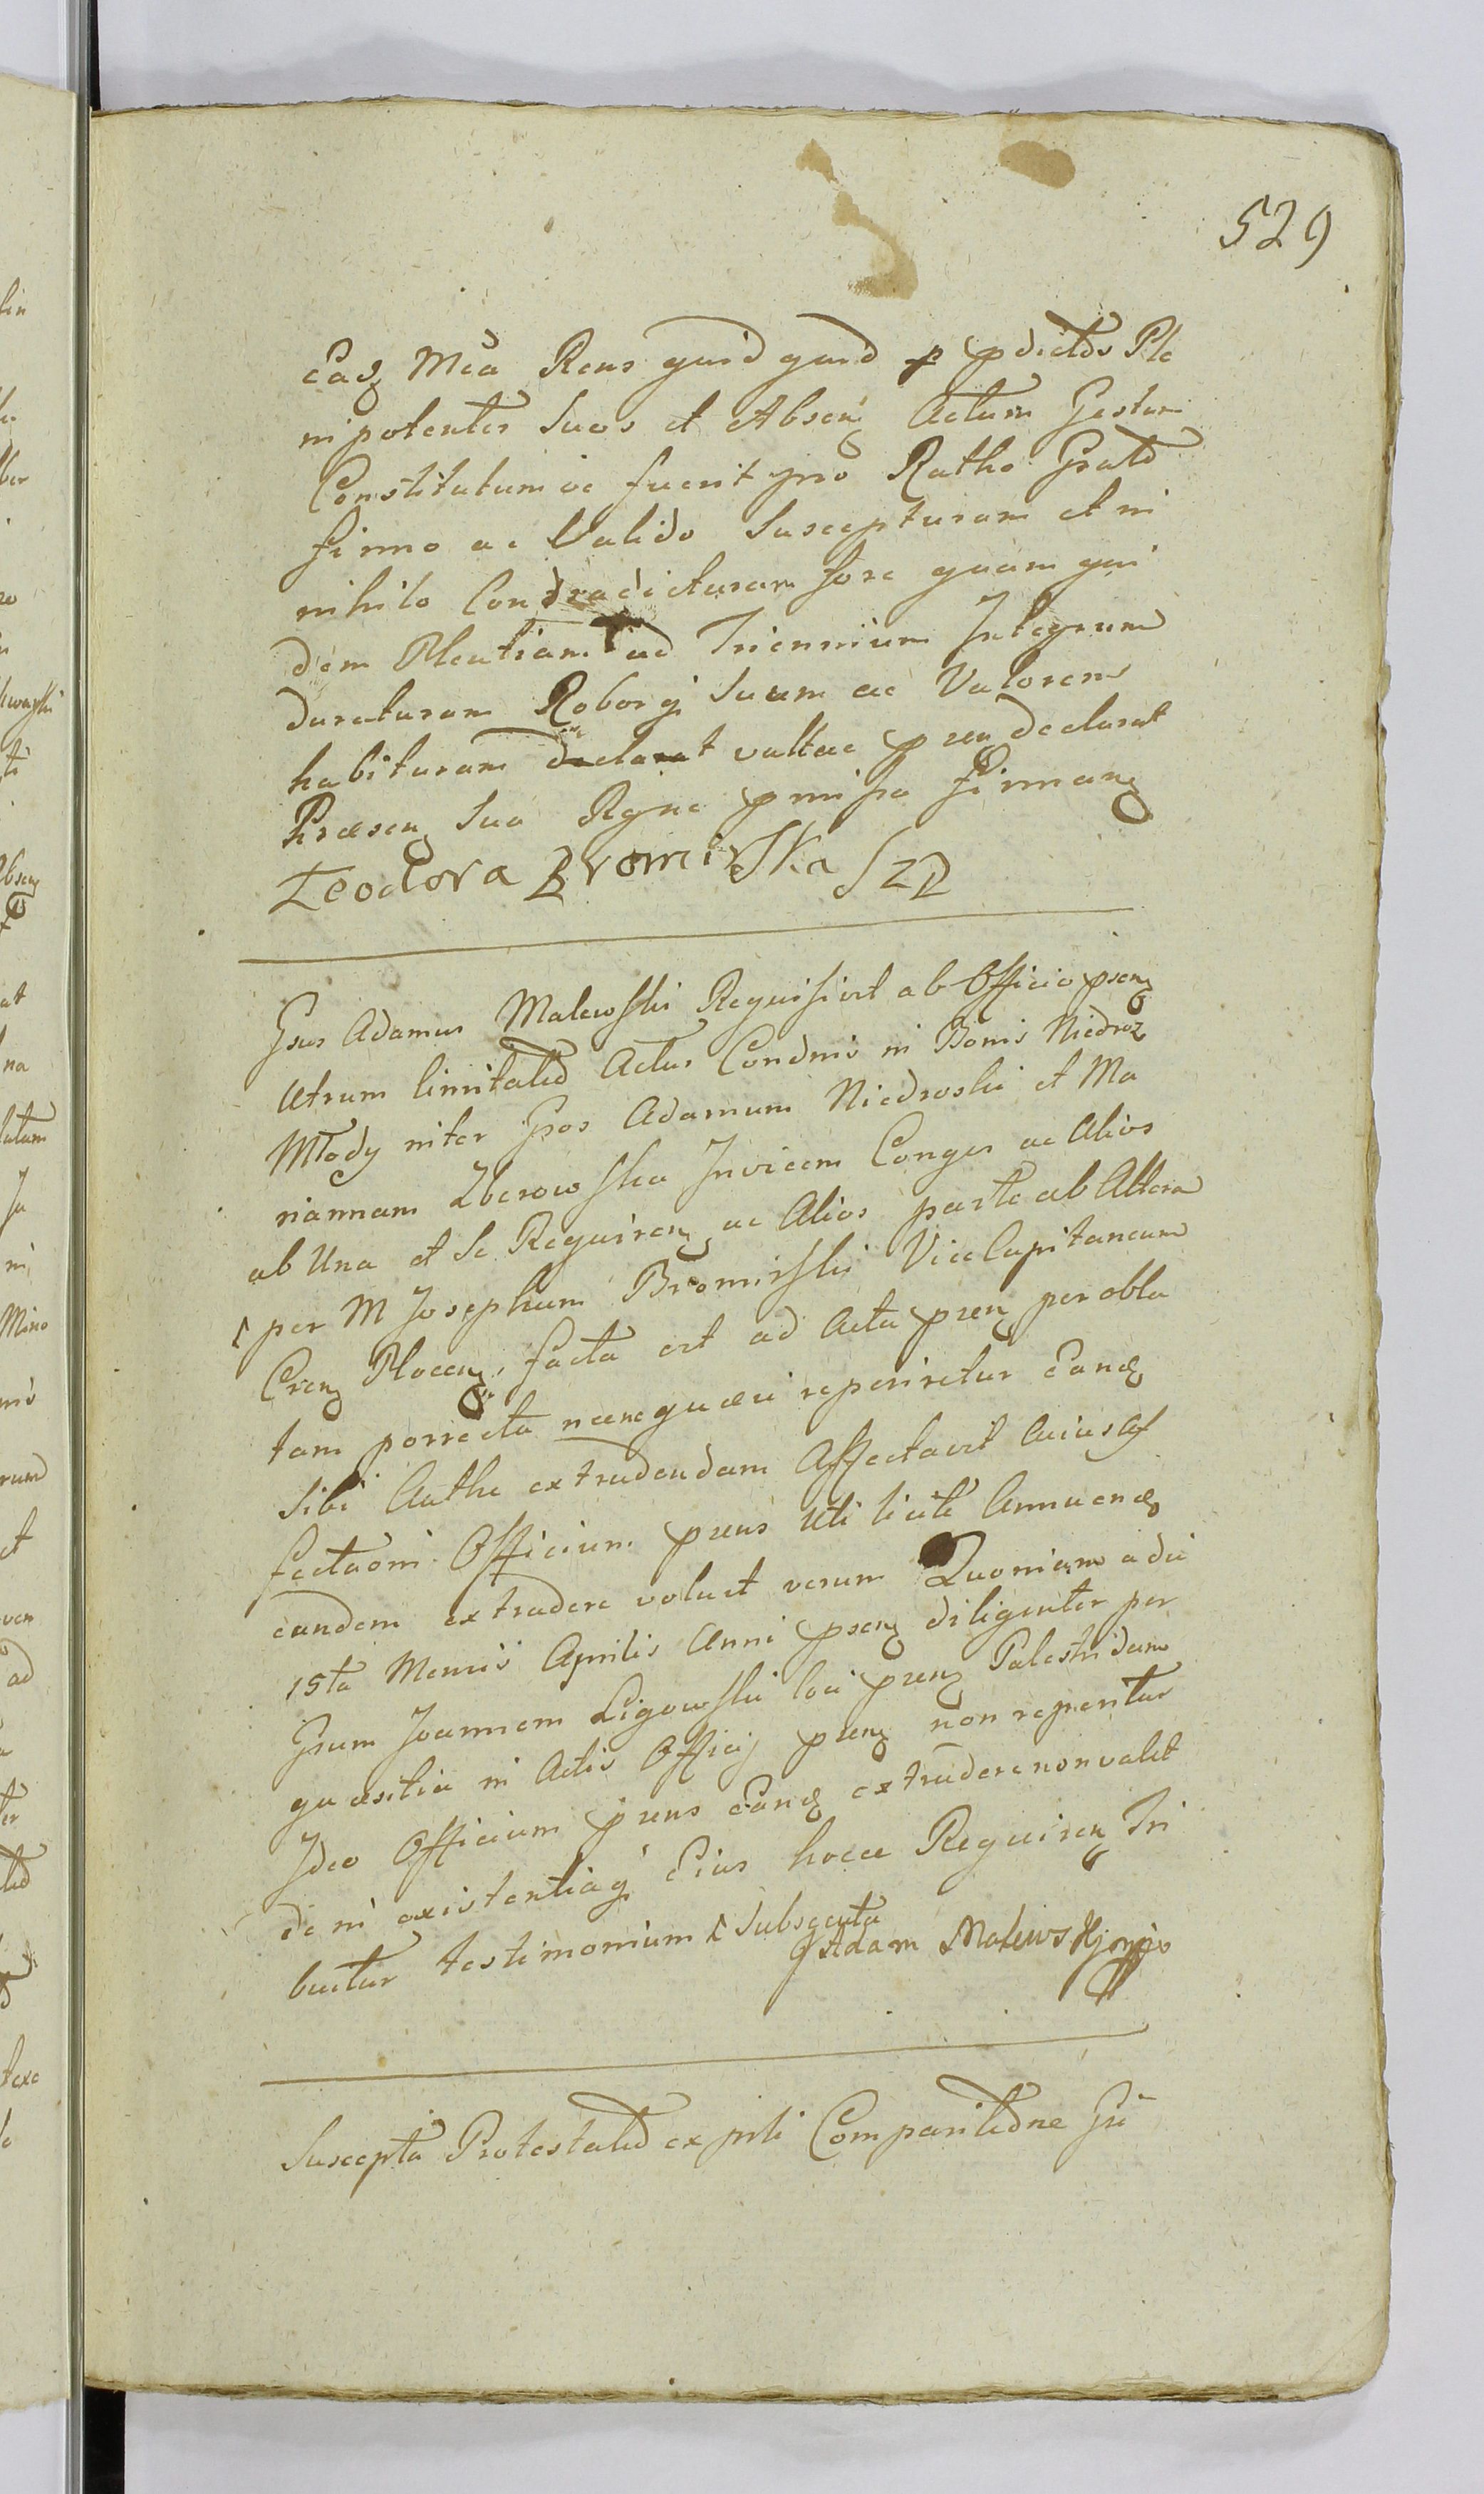 529
Eadq Mca Rcns quid quid p pdictos Ple
nipotentes Suos et Absen Actum Gestum
Constitutumve fuerit pro Ratho Grato
firmo ac Valido Suscepturam et in
nihilo Contradicturam fore quam qui
dem Plentiam ad Triennium Integrum
duraturam Roborq Suum ac Valorem
habituram declarat vultac pren declarat
Præsen Sua Rgne pmissa firman
Teodora BromirSka SZD
Gsus Adamus Malewski Requisivit ab Officio psen
Utrum limitatio Actus Condnis in Bonis Niedroz
Młody inter Gsos Adamum Niedroski et Ma
riannam Zberowska Invicem Conges ac Alios
ab Una et Se Requiren ac Alios parte ab Altera
per M Josephum Bromirski ViceCapitaneum
Cren Plocen facta est ad Acta pren per obla
tam porrecta necne quæri reperiretur Eandq
Sibi Authe extradendam Affectavit Cuius af
fectaoni Officium prens Uti licite Annuendo
eandem extradere voluit verum Quoniam a die
15ta Mensis Aprilis Anni psen diligenter per
Gsum Joannem Ligowski loci pren Palestridam
quæsitia in Actis Officij pren non reperitur
Ideo Officium prens Eandq extradere non valet
de in existentiaq Eius hocce Requiren Tri
buitur testimonium Subsecuta
Adam Malewski mpp
Suscepta Protestatio ex psli Comparitione Gsi